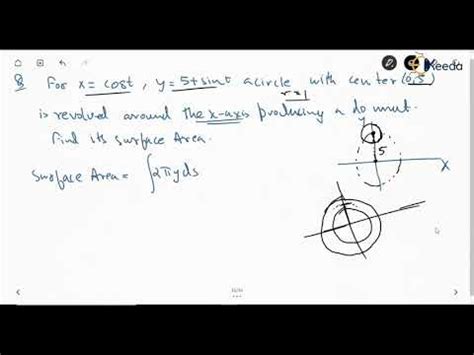 Keeda
Q For x = cost, y = 5+sint a circle with center (0,5)
r=1
is revolved around the x-axis producing a do nut.
Find its surface Area.
y
5
X
Surface Area = ∫2πy ds